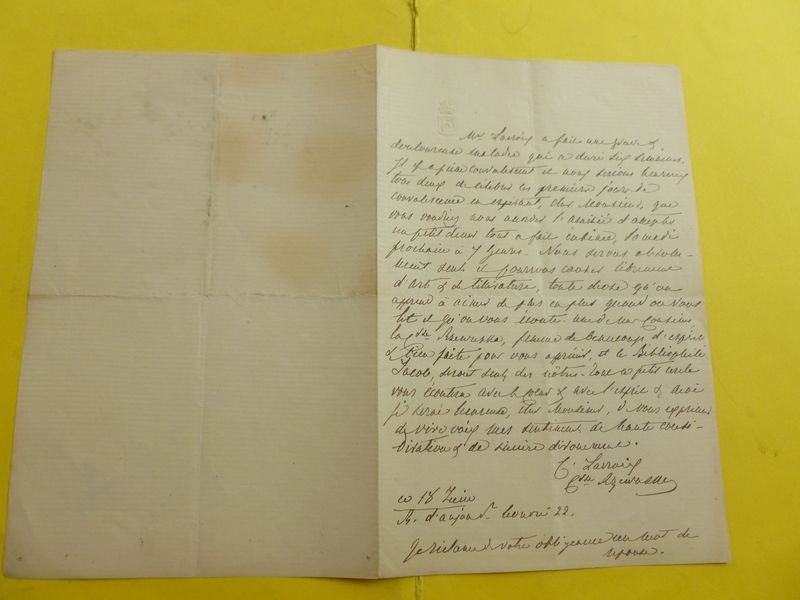 Mr Lacroix a fait une grave &
douloureuse maladie qui a duré six semaines.
Il est à peine convalescent et nous serions heureux
tous deux de célébrer les premiers jours de
convalescence en espérant, cher Monsieur, que
vous voudrez nous accorder l'amitié d'accepter
un petit diner tout à fait intime, Samedi
prochain à 7 heures. Nous serons absolu-
ment seuls et pourrons causer librement
d'art & de littérature, toute chose qu'on
apprend à aimer de plus en plus quand on vous
lit et qu'on vous écoute. une de mes cousines
la Ctsse Rzewuska, femme de beaucoup d'esprit
& bien faite pour vous apprécier, et le Bibliophile
Jacob, seront seuls des nôtres. tout ce petit cercle
vous écoutera avec le coeur & avec l'esprit & moi
je serai heureuse, cher Monsieur, de vous exprimer
de vive voix mes sentiments de haute consi-
dération & de sincère dévouement.
C. Lacroix
Ctsse Rzewuska
ce 18 Juin
R. d'anjou St honoré 22.
Je réclame de votre obligeance un mot de
réponse.